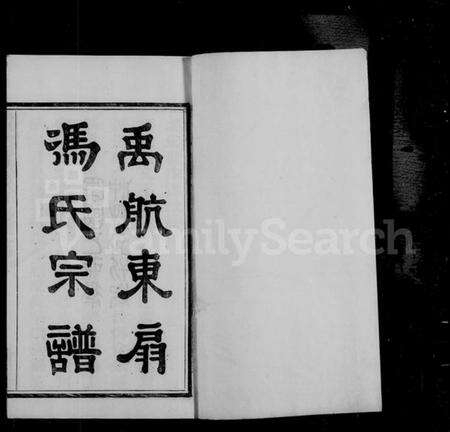 禹航東扇
馮氏宗譜
FamilySearch